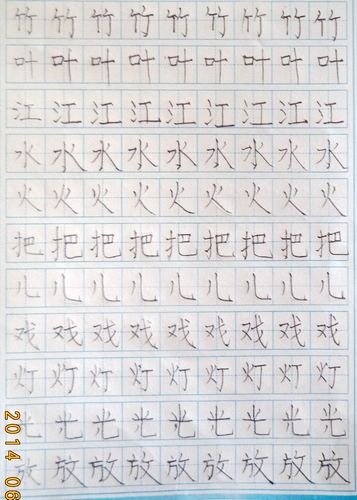 竹竹竹竹竹竹竹竹竹
叶叶叶叶叶叶叶叶叶
江江江江江江江江江
水水水水水水水水水
火火火火火火火火火
把把把把把把把把把
儿儿儿儿儿儿儿儿儿
戏戏戏戏戏戏戏戏戏
灯灯灯灯灯灯灯灯灯
光光光光光光光光光
放放放放放放放放放
2014 06